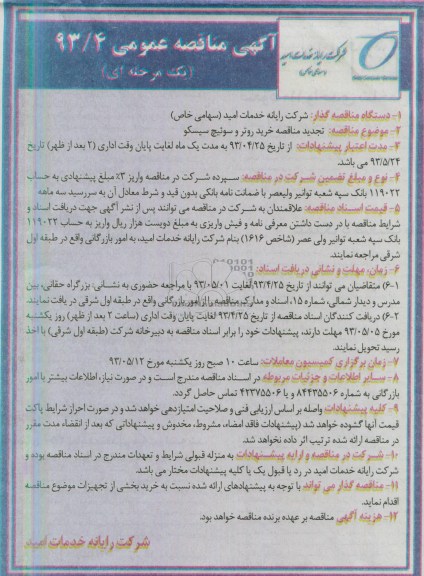 آگهی مناقصه عمومی ۹۳/۴
(یک مرحله ای)
شرکت رایانه خدمات امید
(سهامی خاص)
۱- دستگاه مناقصه گذار: شرکت رایانه خدمات امید (سهامی خاص)
۲- موضوع مناقصه: تجدید مناقصه خرید روتر و سوئیچ سیسکو
۳- مدت اعتبار پیشنهادات: از تاریخ ۹۳/۰۴/۲۵ به مدت یک ماه لغایت پایان وقت اداری (۲ بعد از ظهر) تاریخ
۹۳/۵/۲۴ می باشد.
۴- نوع و مبلغ تضمین شرکت در مناقصه: سپرده شرکت در مناقصه واریز ۳٪ مبلغ پیشنهادی به حساب
۱۱۹۰۲۲ بانک سپه شعبه توانیر ولیعصر یا ضمانت نامه بانکی بدون قید و شرط معادل آن به سررسید سه ماهه
۵- قیمت اسناد مناقصه: علاقمندان به شرکت در مناقصه می توانند پس از نشر آگهی جهت دریافت اسناد و
شرایط مناقصه با در دست داشتن معرفی نامه و فیش واریزی به مبلغ دویست هزار ریال واریز به حساب ۱۱۹۰۲۲
بانک سپه شعبه توانیر ولی عصر (شاخص ۱۶۱۶) بنام شرکت رایانه خدمات امید، به امور بازرگانی واقع در طبقه اول
شرقی مراجعه نمایند.
۶- زمان، مهلت و نشانی دریافت اسناد:
۶-۱) متقاضیان می توانند از تاریخ ۹۳/۴/۲۵ لغایت ۹۳/۰۵/۰۱ با مراجعه حضوری به نشانی: بزرگراه حقانی، بین
مدرس و دیدار شمالی، شماره ۱۵، اسناد و مدارک مناقصه را از امور بازرگانی واقع در طبقه اول شرقی دریافت نمایند.
۶-۲) دریافت کنندگان اسناد مناقصه از تاریخ ۹۳/۴/۲۵ لغایت پایان وقت اداری (ساعت ۲ بعد از ظهر) روز یکشنبه
مورخ ۹۳/۰۵/۰۵ مهلت دارند، پیشنهادات خود را برابر اسناد مناقصه به دبیرخانه شرکت (طبقه اول شرقی) با اخذ
رسید تحویل نمایند.
۷- زمان برگزاری کمیسیون معاملات: ساعت ۱۰ صبح روز یکشنبه مورخ ۹۳/۰۵/۱۲
۸- سایر اطلاعات و جزئیات مربوطه در اسناد مناقصه مندرج است و در صورت نیاز، اطلاعات بیشتر با امور
بازرگانی به شماره ۸۴۴۳۵۵۰۶ و یا ۴۲۳۷۵۵۰۶ تماس حاصل گردد.
۹- کلیه پیشنهادات واصله بر اساس ارزیابی فنی و صلاحیت امتیازدهی خواهد شد و در صورت احراز شرایط پاکت
قیمت آنها گشوده خواهد شد (پیشنهادات فاقد امضاء، مشروط، مخدوش و پیشنهاداتی که بعد از انقضاء مدت مقرر
در مناقصه ارائه شده ترتیب اثر داده نخواهد شد.
۱۰- شرکت در مناقصه و ارایه پیشنهادات به منزله قبولی شرایط و تعهدات مندرج در اسناد مناقصه بوده و
شرکت رایانه خدمات امید در رد یا قبول یک یا کلیه پیشنهادات مختار می باشد.
۱۱- مناقصه گذار می تواند با توجه به پیشنهادهای ارائه شده نسبت به خرید بخشی از تجهیزات موضوع مناقصه
اقدام نماید.
۱۲- هزینه آگهی مناقصه بر عهده برنده مناقصه خواهد بود.
شرکت رایانه خدمات امید